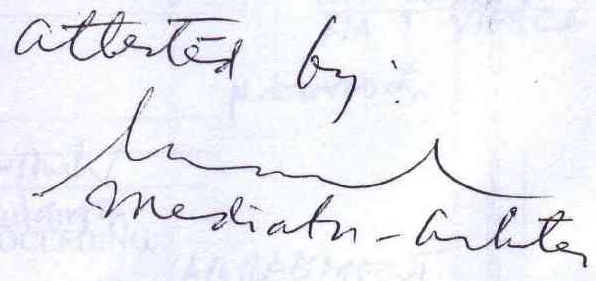 attested by:
Mediator-Arbiter